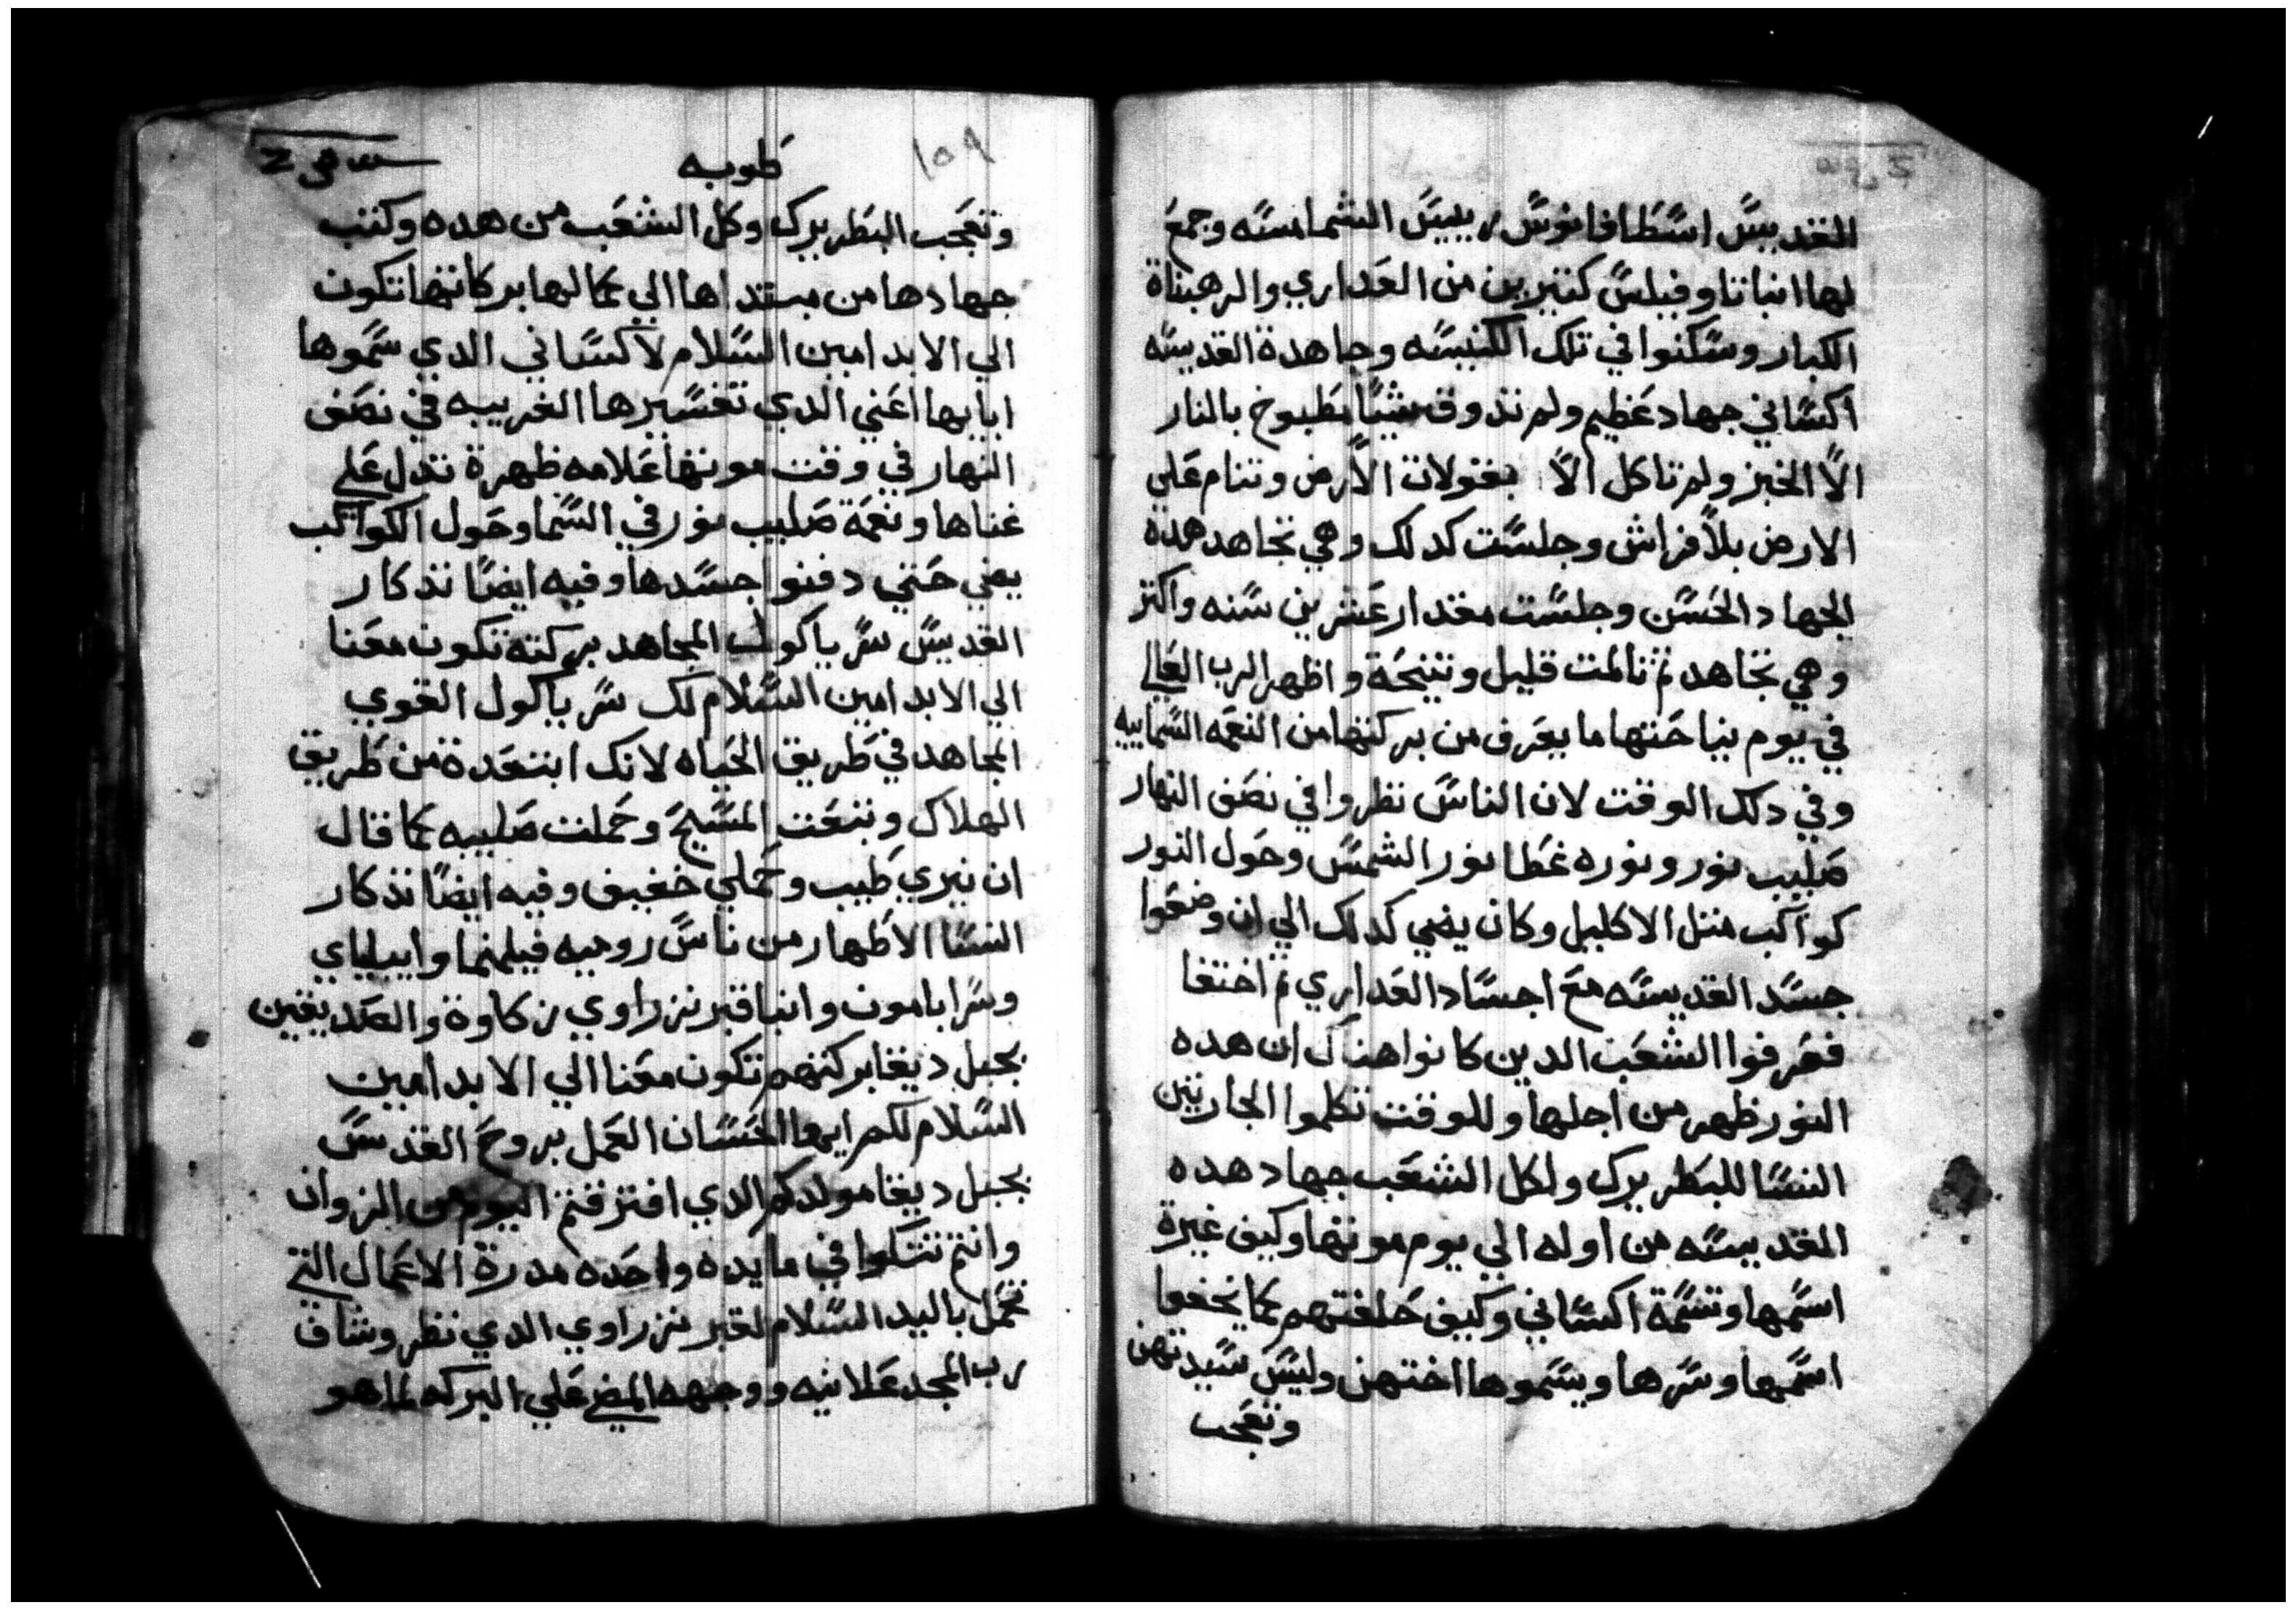 القديس اسطافانوس رييس الشمامسه وجمع
لها انبا تاوفيلس كتيرين من العداري والرهبناة
الكبار وسكنوا في تلك الكنيسه وجاهدة القديسه
اكساني جهاد عظيم ولم تذوق شيا مطبوخ بالنار
الا الخبز ولم تاكل الا بقولات الارض وتنام علي
الارض بلا فراش وجلست كدلك وهي تجاهد هده
الجهاد الحسن وجلست مقدار عشرين سنه واكتر
وهي تجاهد تم تالمت قليل وتنيحة واظهر الرب العالي
في يوم نياحتها ما يعرف من بركتها من النعمه السماييه
وفي دلك الوقت لان الناس نظروا في نصف النهار
صليب نور ونوره غطا نور الشمس وحول النور
كواكب متل الاكليل وكان يضي كدلك الي ان وضعوا
جسد القديسه مع اجساد العداري تم اختفا
فعرفوا الشعب الدين كانوا هناك ان هده
النور ظهر من اجلها وللوقت تكلموا الجاريتين
النسا للبطريرك ولكل الشعب جهاد هده
القديسه من اوله الي يوم موتها وكيف غيرة
اسمها وتسمة اكساني وكيف حلفتهم كما يخفوا
اسمها وسرها ويسموها اختهن وليس سيدتهن
وتعجب
١٥٩
طوبه
وتعجب البطريرك وكل الشعب من هده وكتب
جهادها من مبتداها الي كمالها بركاتها تكون
الي الابد امين السلام لاكساني الدي سموها
ابايها اعني الدي تفسيرها الغريبه في نصف
النهار في وقت موتها علامه ظهرة تدل علي
غناها ونعمة صليب نور في السما وحول الكواكب
يضي حتي دفنوا جسدها وفيه ايضا تذكار
القديس سرياكوك المجاهد بركته تكون معنا
الي الابد امين السلام لك سرياكول القوي
المجاهد في طريق الحياه لانك ابتعدة من طريق
الهلاك وتبعت المسيح وحملت صليبه كما قال
ان نيري طيب وحملي خفيف وفيه ايضا تذكار
النسا الاطهار من ناس روميه فيلمنما وايبلياي
وسرابامون وانبا قبر نزراوي زكاوة والصديقين
بجبل ديغا بركتهم تكون معنا الي الابد امين
السلام لكم ايها الحسان العمل بروح القدس
بجبل ديغا مولدكم الدي افترقتم اليوم من الزوان
وانتم تتكلوا في مايده واحده مدرة الاعمال التي
تعمل باليد السلام لقبر نزراوي الدي نظر وشاف
رب المجد علانيه ووجهه المضي علي البركه لما هو